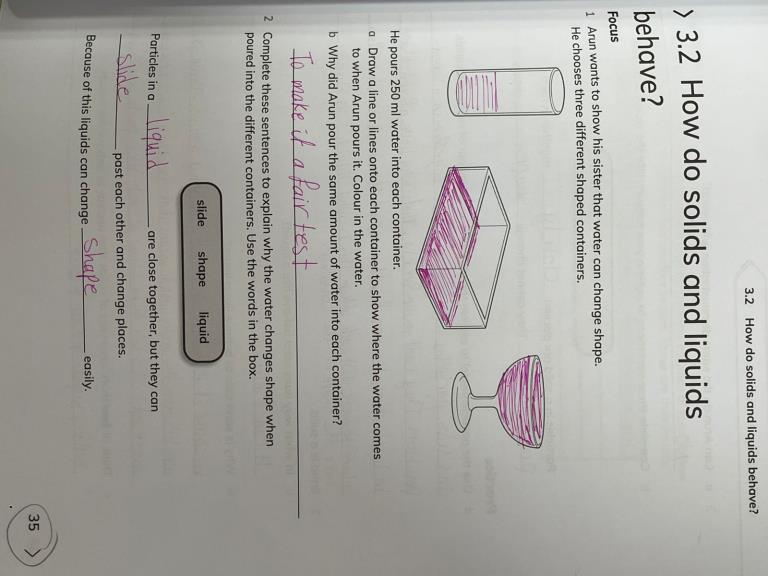 3.2 How do solids and liquids behave?
> 3.2 How do solids and liquids
behave?
Focus
1 Arun wants to show his sister that water can change shape.
He chooses three different shaped containers.
He pours 250 ml water into each container.
a Draw a line or lines onto each container to show where the water comes
to when Arun pours it. Colour in the water.
b Why did Arun pour the same amount of water into each container?
To make it a fair test
2 Complete these sentences to explain why the water changes shape when
poured into the different containers. Use the words in the box.
slide shape liquid
Particles in a liquid are close together, but they can
slide past each other and change places.
Because of this liquids can change Shape easily.
35 >